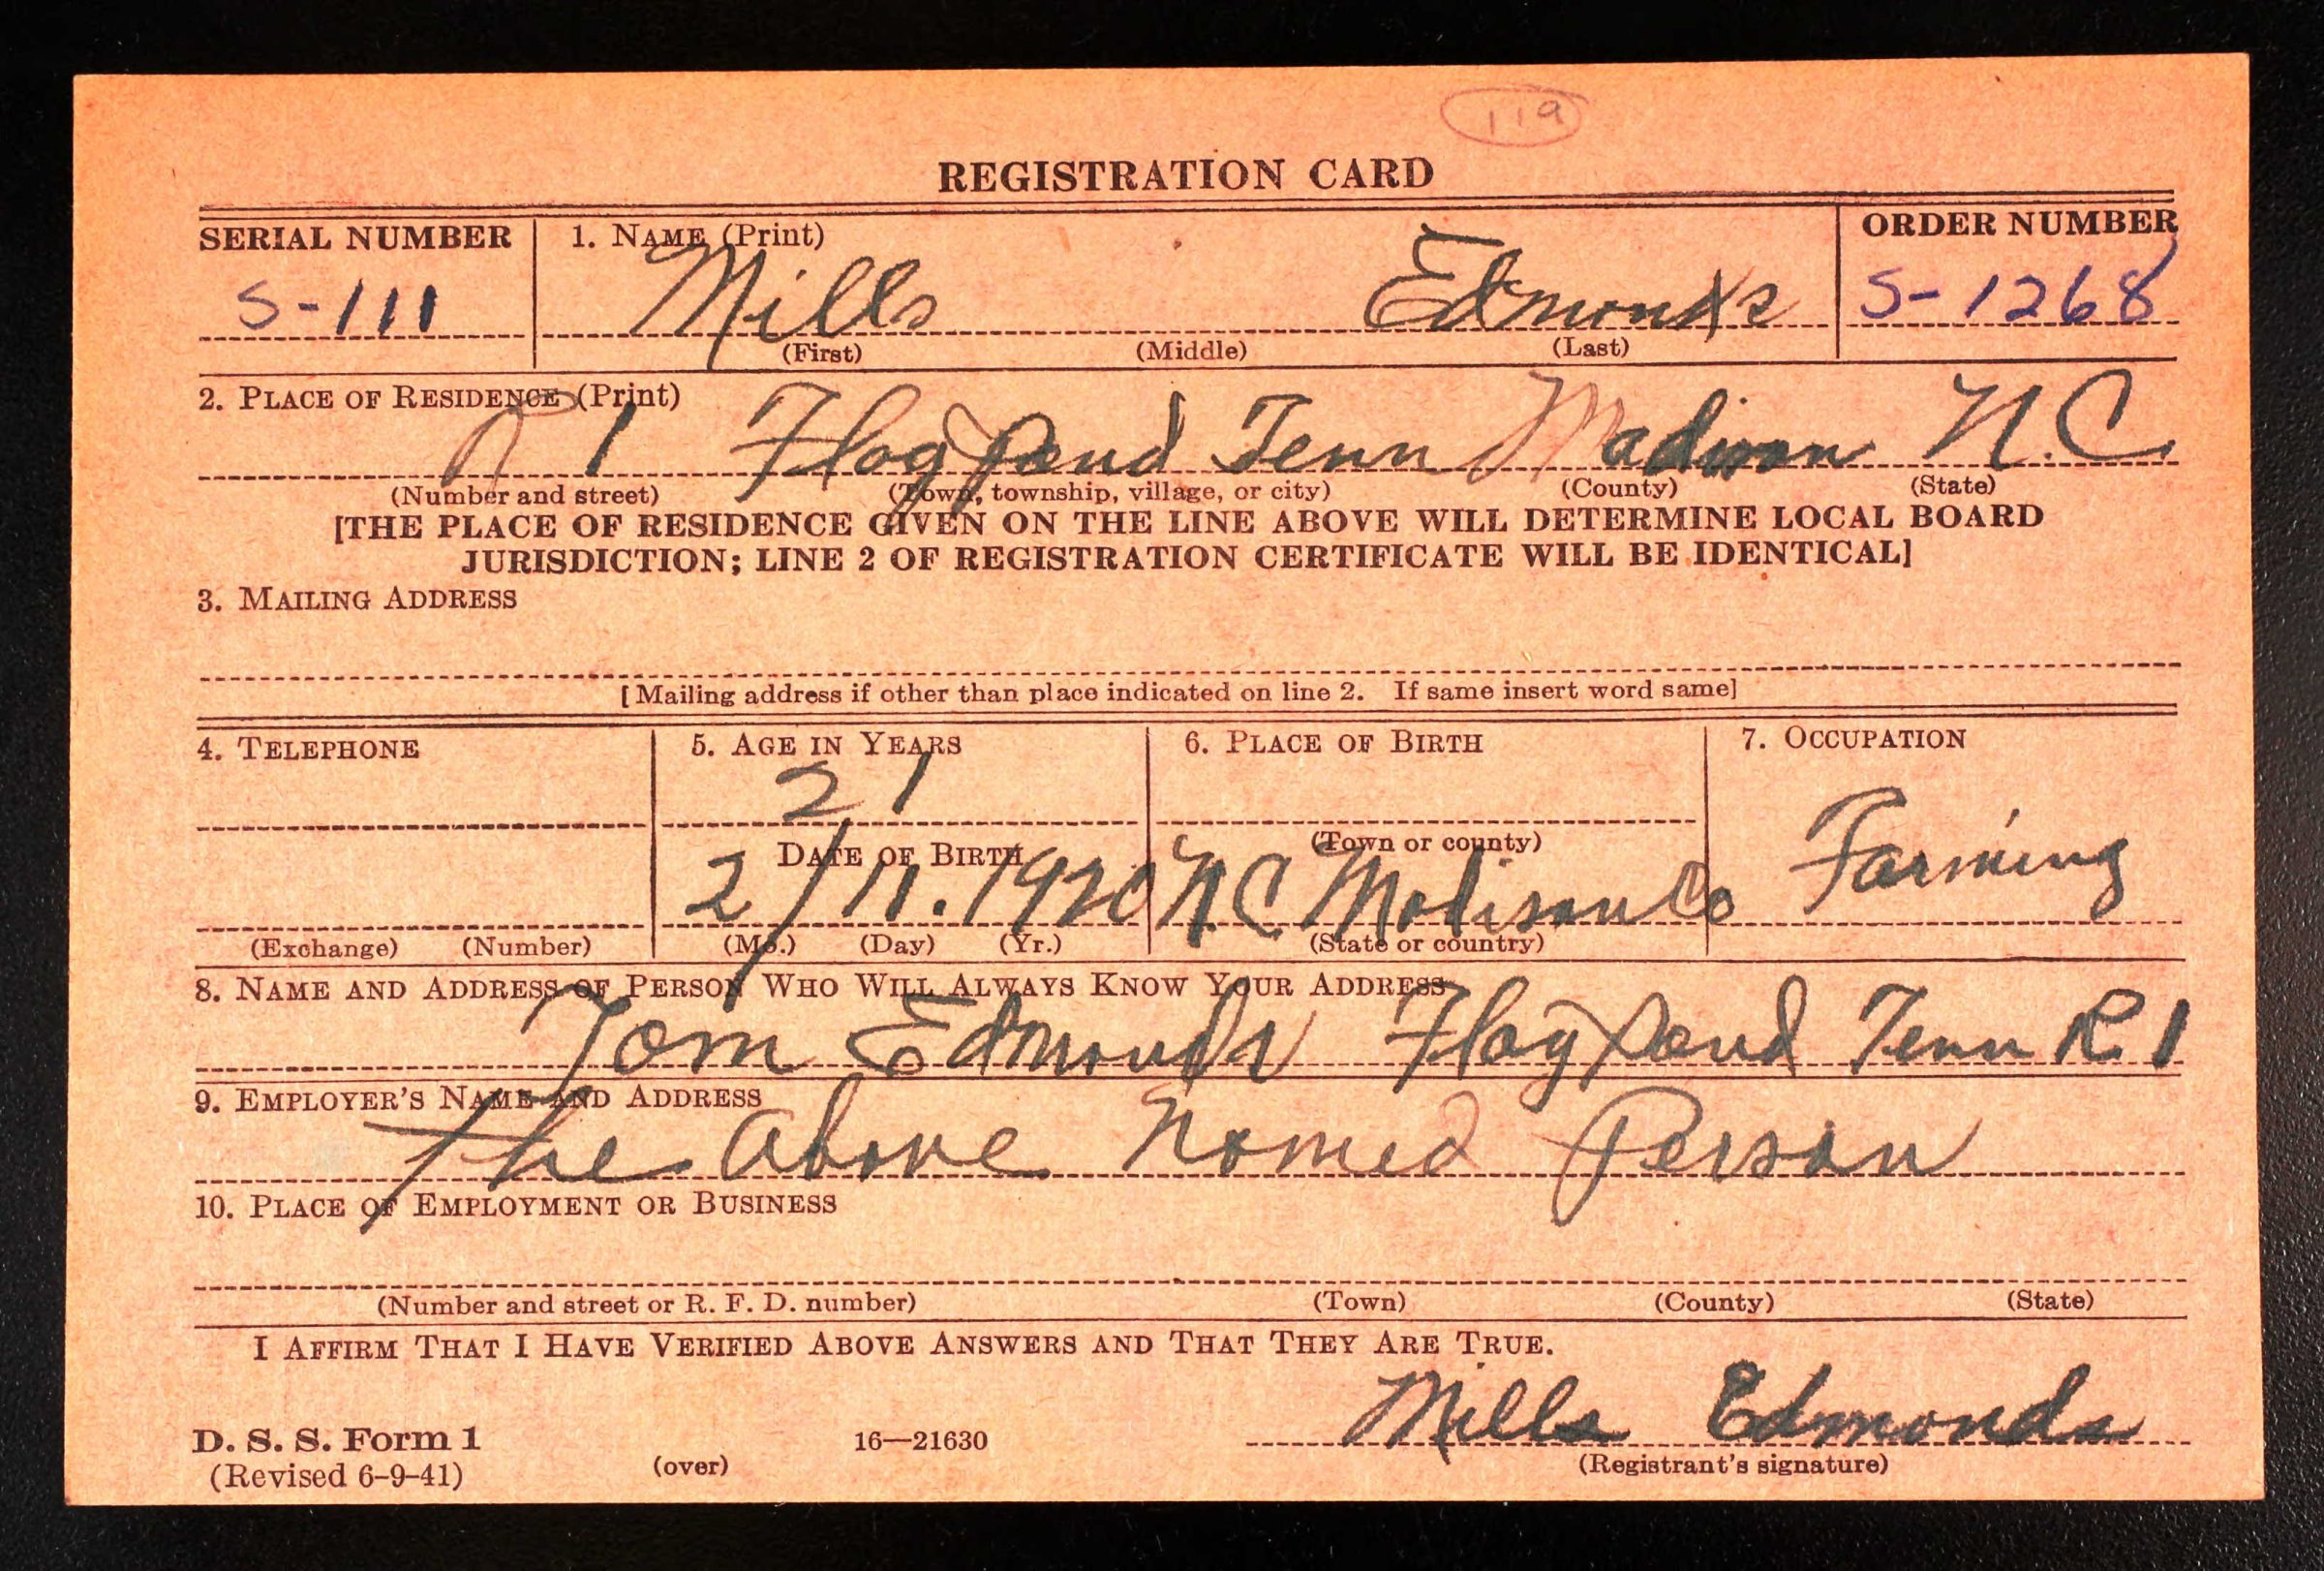 119
REGISTRATION CARD
SERIAL NUMBER 1. NAME (Print) ORDER NUMBER
S-111 Mills Edmonds S-1268
(First) (Middle) (Last)
2. PLACE OF RESIDENCE (Print)
R 1 Flag Pond Tenn Madison N.C.
(Number and street) (Town, township, village, or city) (County) (State)
[THE PLACE OF RESIDENCE GIVEN ON THE LINE ABOVE WILL DETERMINE LOCAL BOARD
JURISDICTION; LINE 2 OF REGISTRATION CERTIFICATE WILL BE IDENTICAL]
3. MAILING ADDRESS
[Mailing address if other than place indicated on line 2. If same insert word same]
4. TELEPHONE 5. AGE IN YEARS 6. PLACE OF BIRTH 7. OCCUPATION
21
(Town or county)
DATE OF BIRTH
2/11.1920 NC Madison Co Farming
(Exchange) (Number) (Mo.) (Day) (Yr.) (State or country)
8. NAME AND ADDRESS OF PERSON WHO WILL ALWAYS KNOW YOUR ADDRESS
Tom Edmonds Flag Pond Tenn R. 1
9. EMPLOYER'S NAME AND ADDRESS
the above Named Person
10. PLACE OF EMPLOYMENT OR BUSINESS
(Number and street or R. F. D. number) (Town) (County) (State)
I AFFIRM THAT I HAVE VERIFIED ABOVE ANSWERS AND THAT THEY ARE TRUE.
Mills Edmonds
D. S. S. Form 1 16—21630
(Revised 6-9-41) (over) (Registrant's signature)